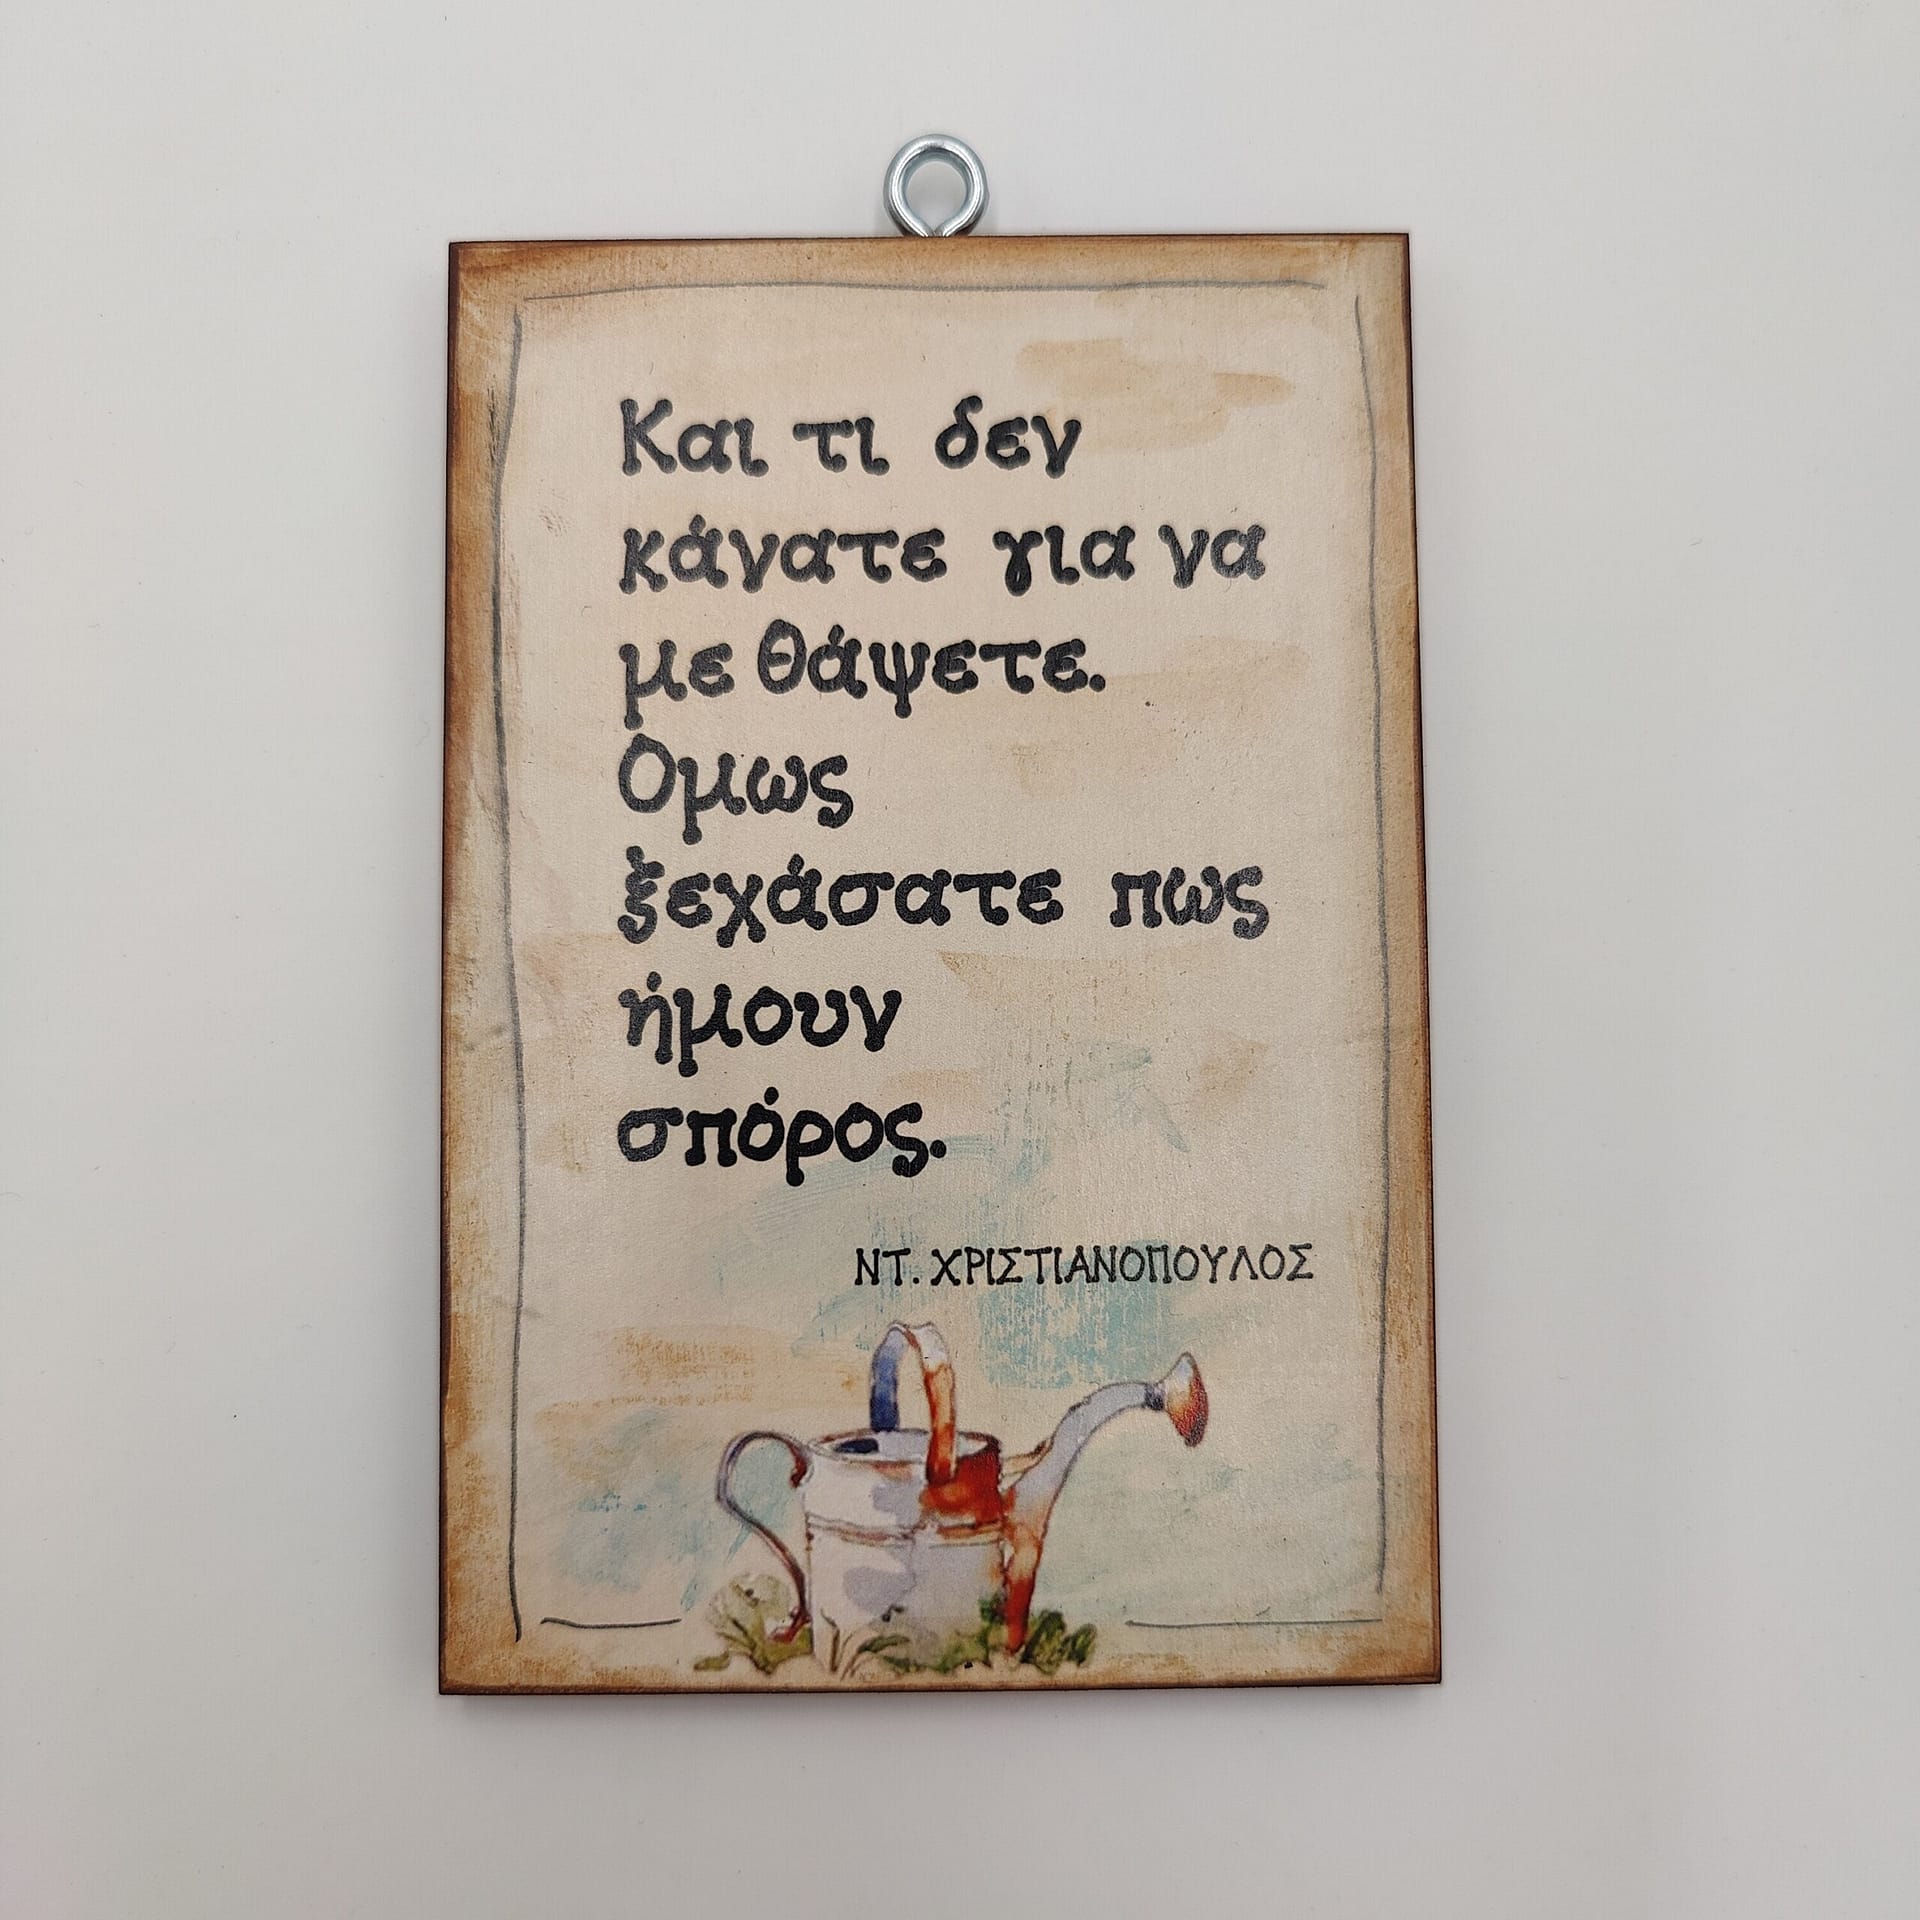 Και τι δεν
κάνατε για να
με θάψετε.
Όμως
ξεχάσατε πως
ήμουν
σπόρος.
ΝΤ. ΧΡΙΣΤΙΑΝΟΠΟΥΛΟΣ